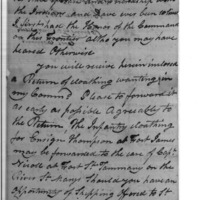 the Indians and have ever since
I first had the Honor of the Command
on this Frontier altho you may have
heard Otherwise
you will receive herein inclosed
a Return of cloathing wanting in
my Comm.d Please to forward it
as early as possible Agreeable to
the Return, The Infantry cloathing
for Ensign Thompson at Fort James
may be forwarded to the care of Cap.t
at Fort St Tammany on the
River St Marys Should you have an
Opportunity of Shipping Offered to St